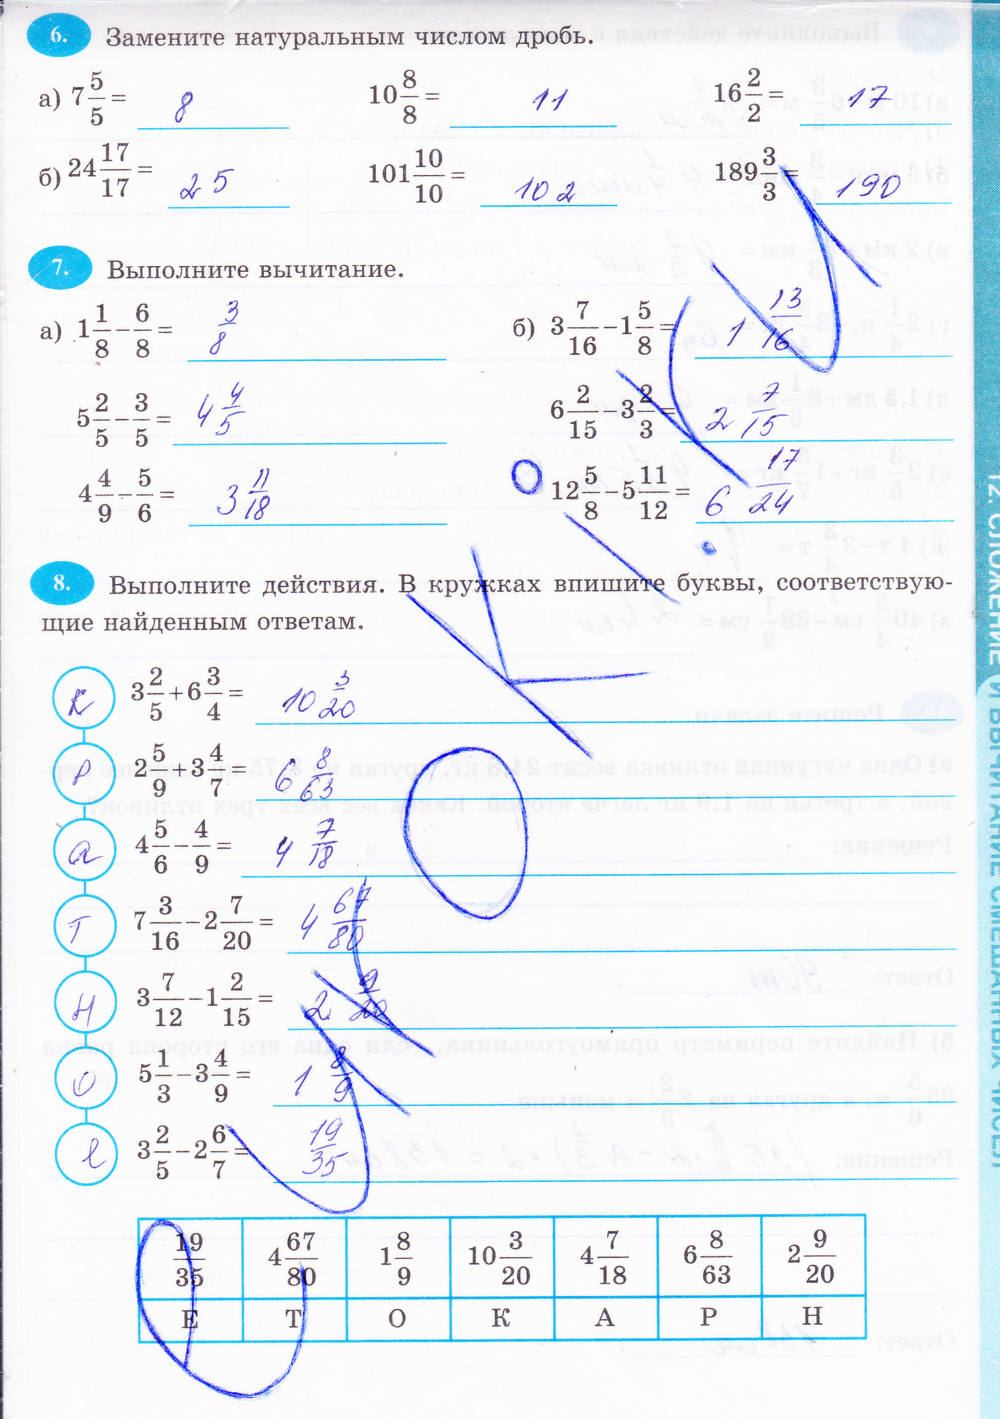 6. Замените натуральным числом дробь.
а) 7 5/5 = 8 10 8/8 = 11 16 2/2 = 17
б) 24 17/17 = 25 101 10/10 = 102 189 3/3 = 190
7. Выполните вычитание.
а) 1 1/8 − 6/8 = 3/8 б) 3 7/16 − 1 5/8 = 1 13/16
5 2/5 − 3/5 = 4 4/5 6 2/15 − 3 2/3 = 2 7/15
4 4/9 − 5/6 = 3 11/18 12 5/8 − 5 11/12 = 6 17/24
8. Выполните действия. В кружках впишите буквы, соответствую-
щие найденным ответам.
К 3 2/5 + 6 3/4 = 10 3/20
Р 2 5/9 + 3 4/7 = 6 8/63
а 4 5/6 − 4/9 = 4 7/18
Т 7 3/16 − 2 7/20 = 4 67/80
Н 3 7/12 − 1 2/15 = 2 9/20
О 5 1/3 − 3 4/9 = 1 8/9
е 3 2/5 − 2 6/7 = 19/35
19/35 4 67/80 1 8/9 10 3/20 4 7/18 6 8/63 2 9/20
Е Т О К А Р Н
12. СЛОЖЕНИЕ И ВЫЧИТАНИЕ СМЕШАННЫХ ЧИСЕЛ